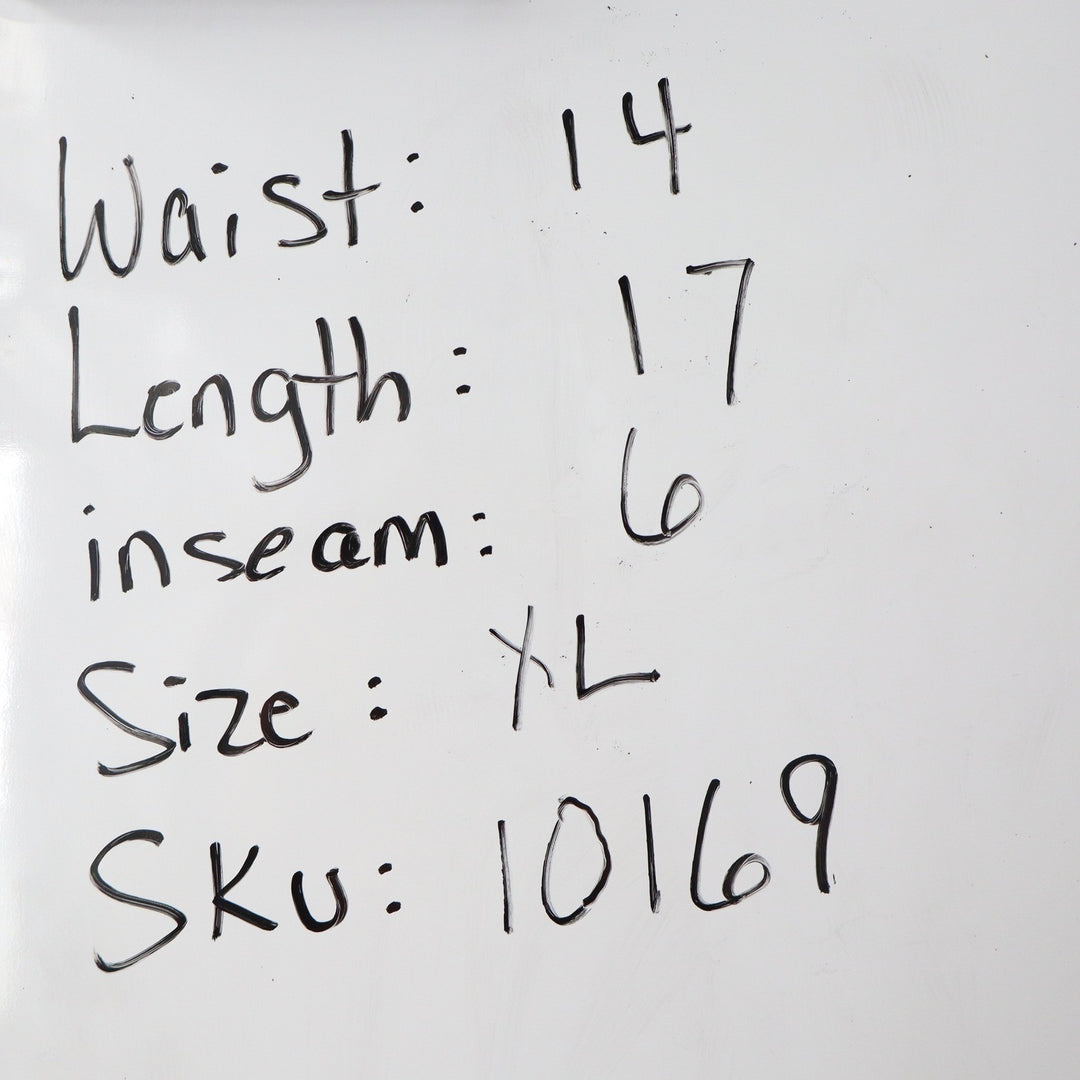 Waist: 14
Length: 17
inseam: 6
Size: XL
SKU: 10169